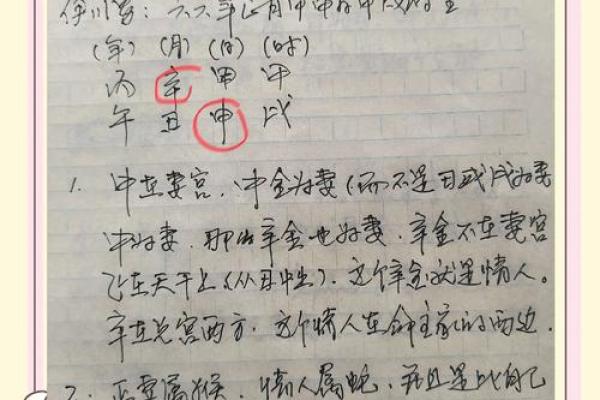 六六年正月甲申日甲戌时生
(年) (月) (日) (时)
丙 辛 甲 甲
午 丑 申 戌
1. 申在妻宫，申金为妻(而不是丑或戌为妻
申为妻，那么辛金也为妻．辛金不在妻宫
飞在天干上(从丑中出)．这个辛金就是情人。
辛在兑宫西方．这个情人在命主家的西边．
2. 正妻属猴，情人属蛇，并且是比自己